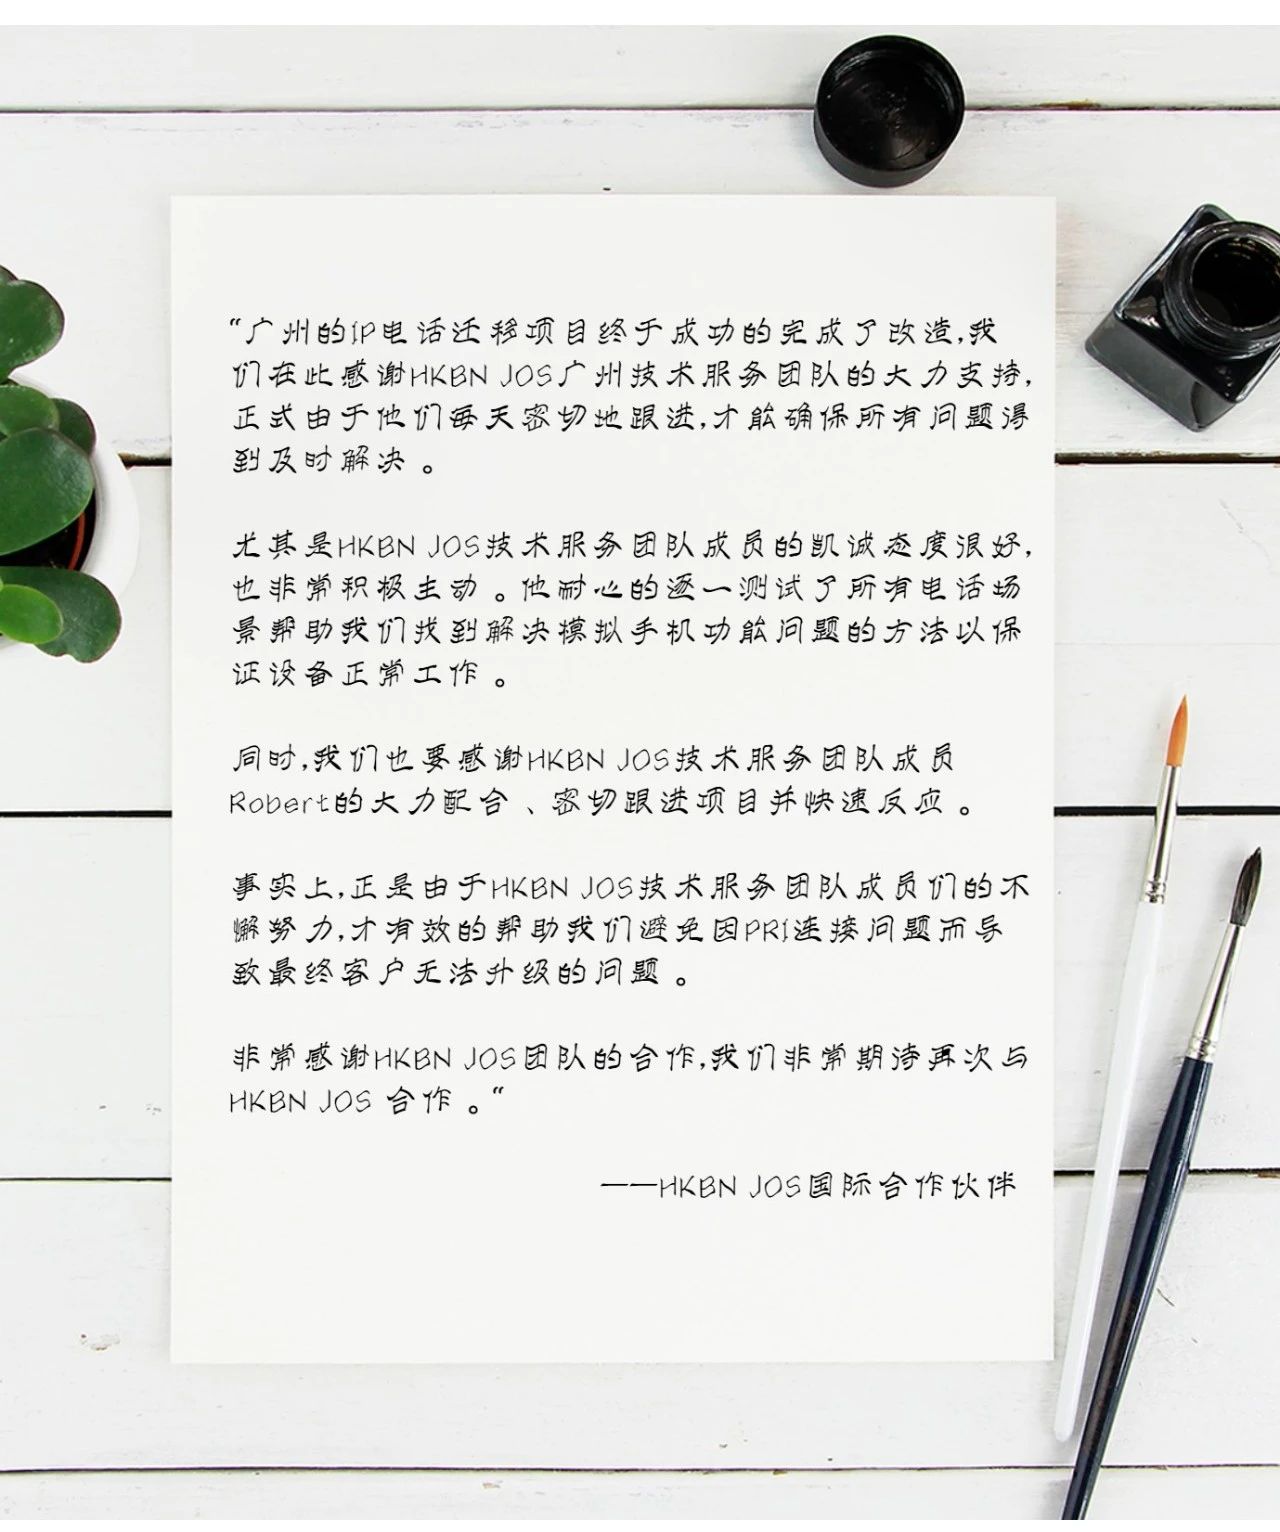 “广州的IP电话迁移项目终于成功的完成了改造,我
们在此感谢HKBN JOS广州技术服务团队的大力支持,
正式由于他们每天密切地跟进,才能确保所有问题得
到及时解决。
尤其是HKBN JOS技术服务团队成员的凯诚态度很好,
也非常积极主动。他耐心的逐一测试了所有电话场
景帮助我们找到解决模拟手机功能问题的方法以保
证设备正常工作。
同时,我们也要感谢HKBN JOS技术服务团队成员
Robert的大力配合、密切跟进项目并快速反应。
事实上,正是由于HKBN JOS技术服务团队成员们的不
懈努力,才有效的帮助我们避免因PRI连接问题而导
致最终客户无法升级的问题。
非常感谢HKBN JOS团队的合作,我们非常期待再次与
HKBN JOS 合作。“
——HKBN JOS国际合作伙伴